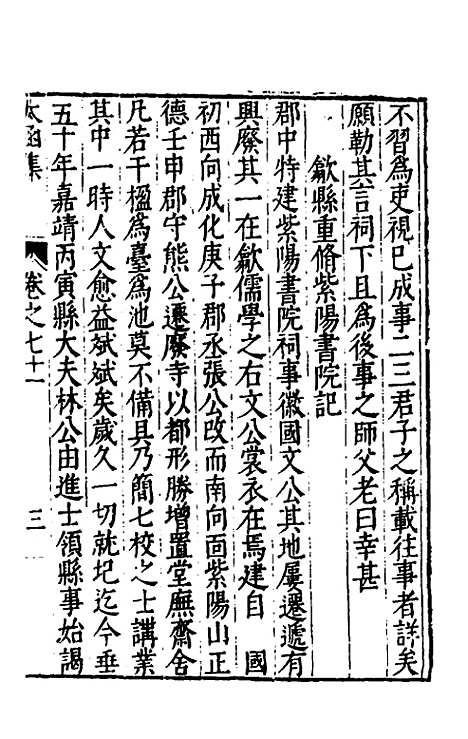 不習爲吏視已成事二三君子之稱載往事者詳矣
願勒其言祠下且爲後事之師父老曰幸甚
歙縣重脩紫陽書院記
郡中特建紫陽書院祠事徽國文公其地屢遷遞有
興廢其一在歙儒學之右文公裳衣在焉建自　國
初西向成化庚子郡丞張公改而南向面紫陽山正
德壬申郡守熊公遷廢寺以都形勝增置堂廡齋舍
凡若干楹爲臺爲池莫不備具乃簡七校之士講業
其中一時人文愈益斌斌矣歲久一切就圮迄今垂
五十年嘉靖丙寅縣大夫林公由進士領縣事始謁
太函集　卷之七十一　三